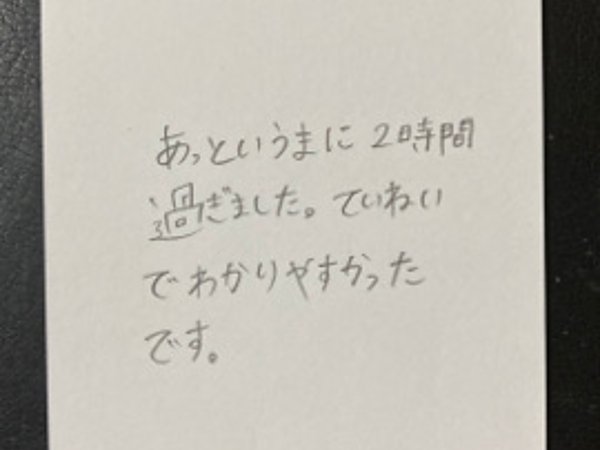 あっというまに2時間
過ぎました。ていねい
でわかりやすかった
です。